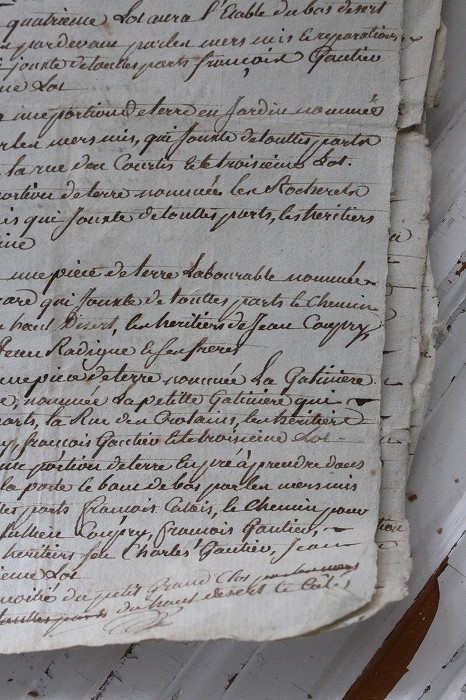 quatrieme Lot aura l'Etable du bas desert
par devant par les mers mis & reparations
jouxte de toutes parts françois Gautier
me Lot
une portion de terre en Jardin nommée
par les mers mis, qui Jouxte de touttes parts
la rue den Courtis & le troisieme Lot.
portion de terre nommée les Rocherets
mis qui Jouxte de touttes parts, les héritiers
une piece de terre Labourable nommée
qui Jouxte de touttes parts le Chemin
haut Désert, les héritiers de Jean Coupry
Jean Radigue & ses freres
une piece de terre nommée La Gatiniere
nommée La petitte Gatiniere qui
parts, la Rue den héritiers
françois Gautier & le troisieme Lot
une portion de terre en pré à prendre dans
la porte le banc de bas par les mers mis
tes parts françois Calais, le Chemin pour
Coupry, françois Gautier,
héritiers feu Charles Gautier, Jean
ieme Lot
moitié du petit Grand Clos par les mers
touttes parts du haut desert &